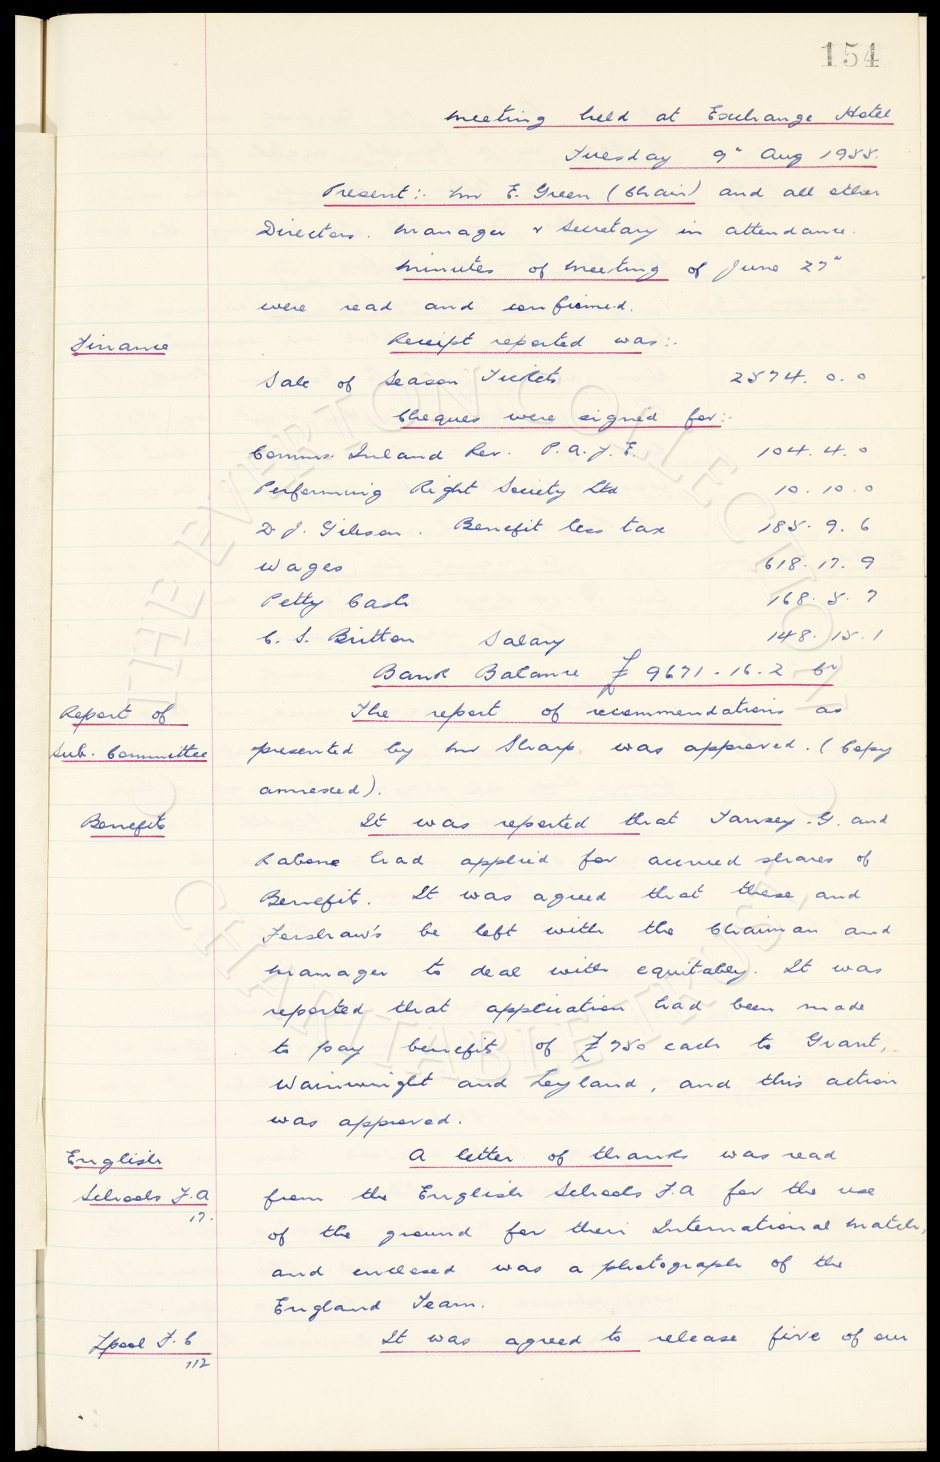 154
Meeting held at Exchange Hotel
Tuesday 9" Aug 1955.
Present:- Mr E. Green (Chair) and all other
Directors. Manager & Secretary in attendance.
Minutes of Meeting of June 27"
were read and confirmed.
Finance Receipt reported was:-
Sale of Season Tickets 2574. 0. 0
Cheques were signed for:-
Comms. Inland Rev. P.A.Y.E. 104. 4. 0
Performing Right Society Ltd 10. 10. 0
D. J. Gibson. Benefit less tax 185. 9. 6
Wages 618. 17. 9
Petty Cash 168. 5. 7
C. S. Britton Salary 148. 15. 1
Bank Balance £9671-16-2 Cr
Report of The report of recommendations as
Sub. Committee presented by Mr Sharp was approved. (Copy
annexed).
Benefits It was reported that Tansey. G. and
Rabone had applied for accrued shares of
Benefit. It was agreed that these and
be left with the Chairman and
Manager to deal with equitably. It was
reported that application had been made
to pay benefit of £750 each to Grant,
Wainwright and Leyland, and this action
was approved.
English A letter of thanks was read
Schools F.A from the English Schools F.A for the use
17.
of the ground for their International Match,
and enclosed was a photograph of the
England Team.
Lpool F.C It was agreed to release five of our
112
© THE EVERTON COLLECTION CHARITABLE TRUST